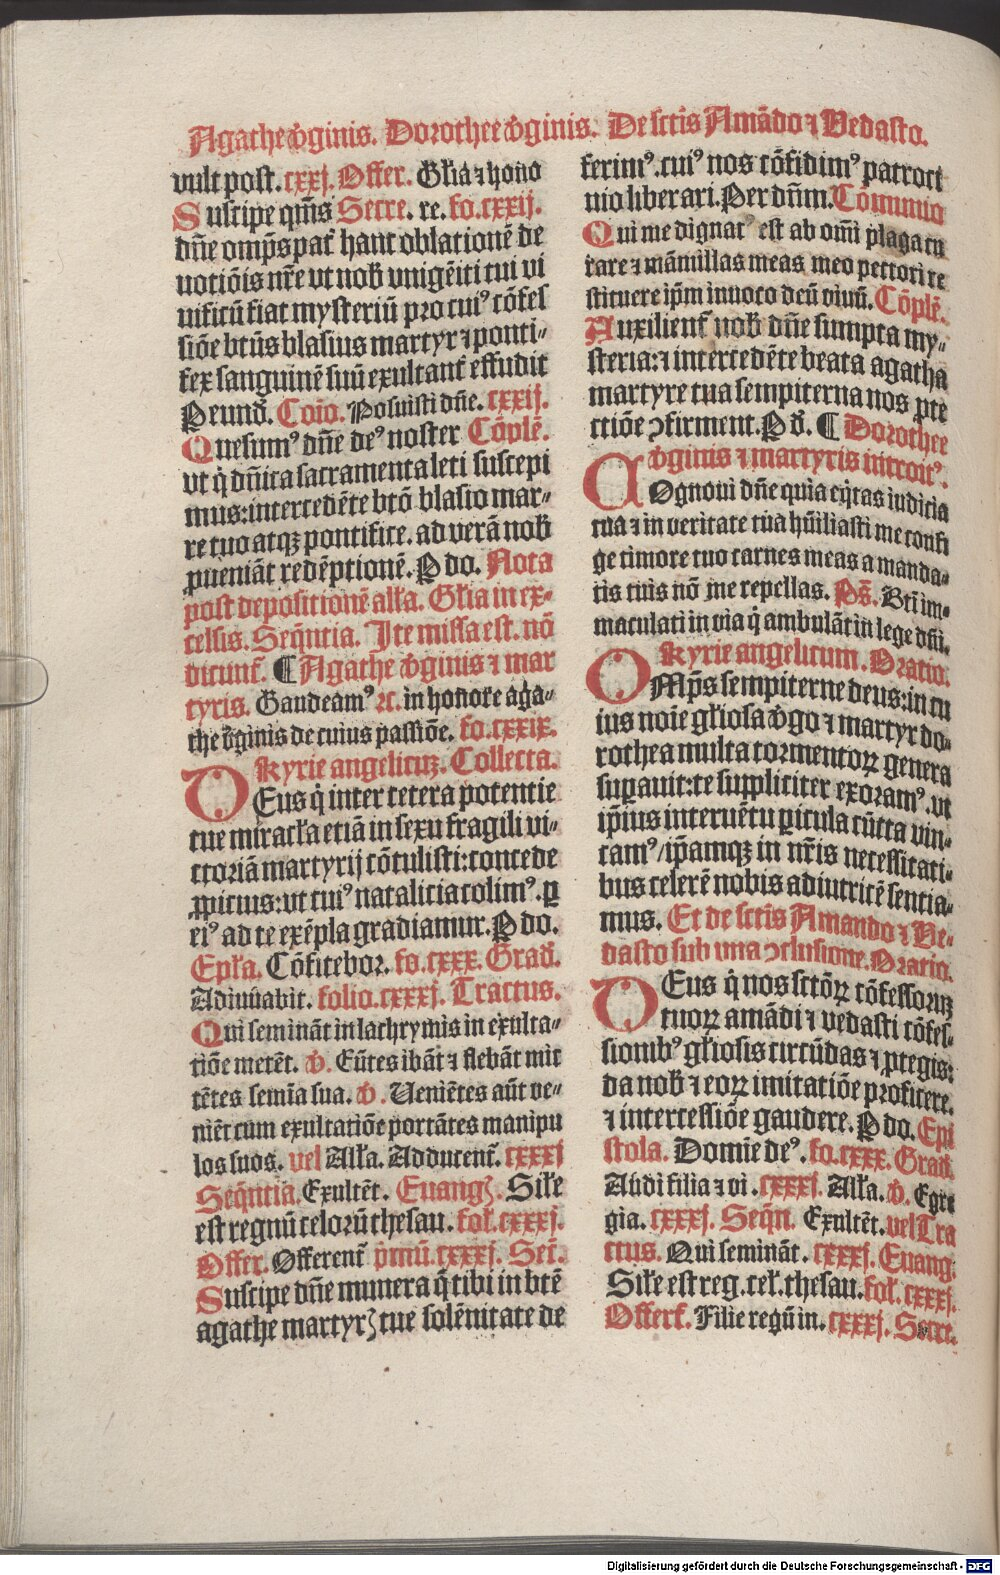 Agathe v̄ginis. Dorothee v̄ginis. De sctīs Amādo ⁊ Vedasto.
vult post. cxxj. Offer. Gl̄ia ⁊ hono
Suscipe qm̄s Secre. re. fo. cxxij.
dn̄e omp̄s pat̄ hanc oblationē de
uotiōis nr̄e vt nob̄ vnigēiti tui vi
uificū fiat mysteriū pro cuiꝰ cōfes
siōe btūs blasius martyr ⁊ ponti-
fex sanguinē suū exultant̄ effudit
Peund̄. Coīo. Posuisti dn̄e. cxxij.
Quesumꝰ dn̄e deꝰ noster Cōplē.
vt q̄ dn̄ica sacramenta leti suscepi
mus: intercedēte btō blasio mar-
re tuo atqꝫ pontifice. ad verā nob̄
ꝓueniāt redēptionē. P do. Nota
post depositionē all̄a. Gl̄ia in ex-
celsis. Seqn̄tia. Ite missa est. nō
dicunt̄. ¶ Agathe v̄ginis ⁊ mar
tyris. Gaudeamꝰ ⁊c. in honore aga-
the v̄ginis de cuius passiōe. fo. cxxix.
Kyrie angelicuꝫ. Collecta.
DEus q̄ inter cetera potentie
tue miracl̄a etiā in sexu fragili vi-
ctoriā martyrij cōtulisti: concede
ꝓpicius: vt cuiꝰ natalicia colimꝰ. ꝑ
eiꝰ ad te exēpla gradiamur. P do.
Epl̄a. Cōfitebor. fo. cxxx. Grad̄.
Adiuuabit. folio. cxxxj. Tractus.
Qui semināt in lachrymis in exulta-
tiōe metēt. v̄. Eūtes ibāt ⁊ flebāt mit
tētes semīa sua. v̄. Veniētes aūt ve-
niēt cum exultatiōe portātes manipu
los suos. vel All̄a. Adducent̄. cxxxj
Seqn̄tia. Exultēt. Euangꝫ. Sil̄e
est regnū celorū thesau. fol̄. cxxxj.
Offer. Offerent̄ p̄mū. cxxxj. Sec̄.
Suscipe dn̄e munera q̄ tibi in btē
agathe martyrꝫ tue solēnitate de
ferimꝰ. cuiꝰ nos cōfidimꝰ patroci
nio liberari. Per dn̄m. Cōmunio
Qui me dignatꝰ est ab om̄i plaga cu
rare ⁊ māmillas meas meo pectori re
stituere ip̄m inuoco deū viuū. Cōplē.
Auxilient̄ nob̄ dn̄e sumpta my-
steria: ⁊ intercedēte beata agatha
martyre tua sempiterna nos ꝓte
ctiōe ↄfirment. P d̄. ¶ Dorothee
v̄ginis ⁊ martyris introitꝰ.
COgnoui dn̄e quia eq̄tas iudicia
tua ⁊ in veritate tua hūiliasti me confi
ge timore tuo carnes meas a manda-
tis tuis nō me repellas. Ps̄. Bt̄i im-
maculati in via q̄ ambulāt in lege dn̄i.
Kyrie angelicum. Oratio.
OMp̄s sempiterne deus: in cu
ius noīe gl̄iosa v̄go ⁊ martyr do-
rothea multa tormentoꝝ genera
suꝑauit: te suppliciter exoramꝰ. vt
ip̄ius interuētu ꝑicula cūcta vin-
cam̄ꝰ/ ip̄amqꝫ in nr̄is necessitati-
bus celerē nobis adiutricē sentia-
mus. Et de sctīs Amando ⁊ Ve-
dasto sub vna ↄclusione. Oratio.
DEus q̄ nos sctōꝝ cōfessoruꝫ
tuoꝝ amādi ⁊ vedasti cōfes-
sionibꝰ gl̄iosis circūdas ⁊ ꝓtegis:
da nob̄ ⁊ eoꝝ imitatiōe proficere.
⁊ intercessiōe gaudere. P do. Epi
stola. Domīe deꝰ. fo. cxxx. Grad̄.
Audi filia ⁊ vi. cxxxj. All̄a. v̄. Egre
gia. cxxxj. Seqn̄. Exultēt. vel Tra
ctus. Qui semināt. cxxxj. Euang.
Sil̄e est reg. cel̄. thesau. fol̄. cxxxj.
Offert̄. Filie regū in. cxxxj. Secre.
Digitalisierung gefördert durch die Deutsche Forschungsgemeinschaft - DFG